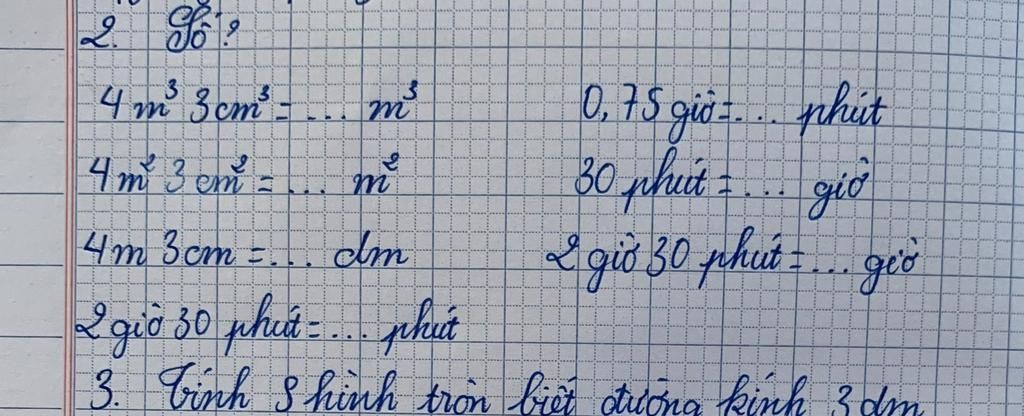 2. Số?
4m³ 3cm³ = ... m³ 0,75 giờ = ... phút
4m² 3cm² = ... m² 30 phút = ... giờ
4m 3cm = ... dm 2 giờ 30 phút = ... giờ
2 giờ 30 phút = ... phút
3. Tính S hình tròn biết đường kính 3 dm